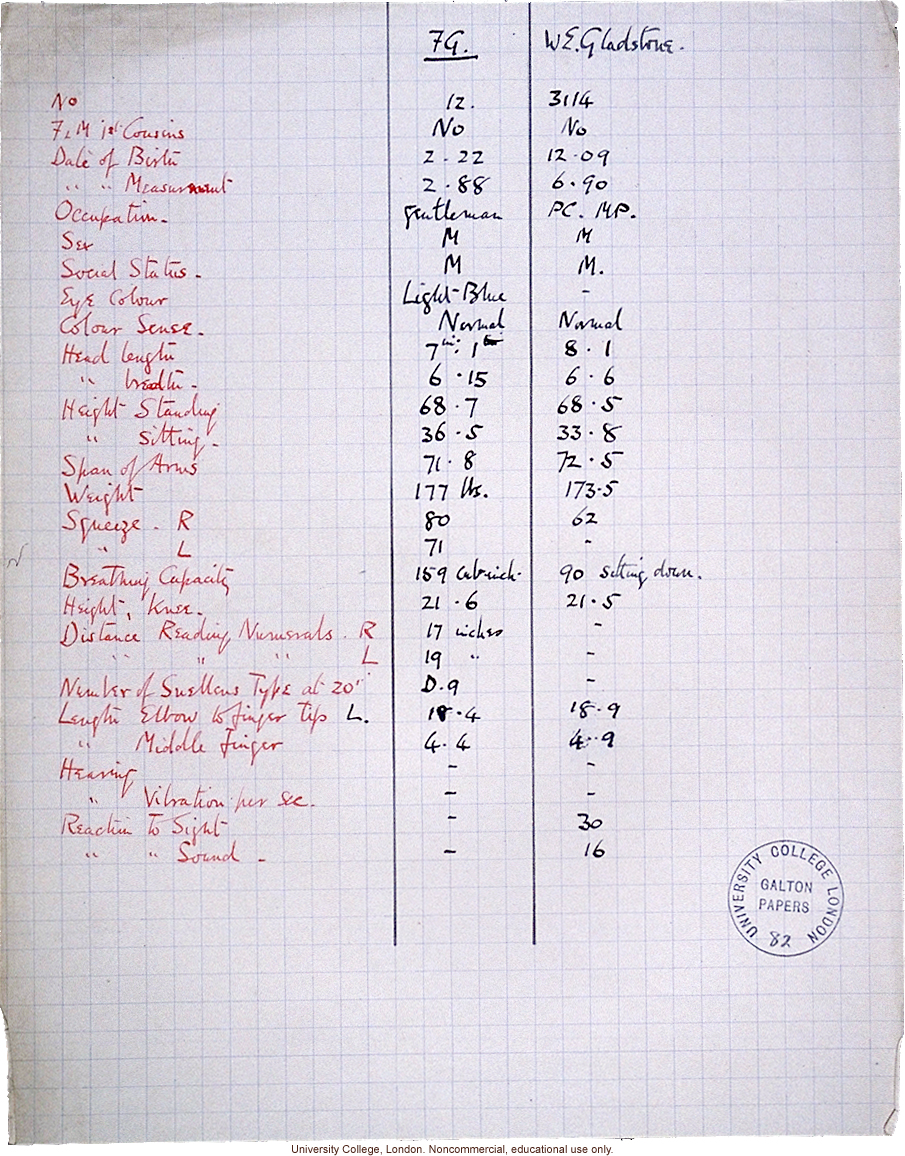 FG. W.E. Gladstone.
No 12. 3114
F & M 1st Cousins No No
Date of Birth 2 · 22 12 · 09
" " Measurement 2 · 88 6 · 90
Occupation - gentleman PC. MP.
Sex M M
Social Status - M M.
Eye Colour Light-Blue -
Colour Sense - Normal Normal
Head length 7 in: 1 8 · 1
" breadth - 6 · 15 6 · 6
Height Standing 68 · 7 68 · 5
" Sitting - 36 · 5 33 · 8
Span of Arms 71 · 8 72 · 5
Weight 177 lbs. 173·5
Squeeze - R 80 62
" L 71 -
Breathing Capacity 159 cub·inch· 90 sitting down.
Height, Knee - 21 · 6 21 · 5
Distance Reading Numerals · R 17 inches -
" " " L 19 " -
Number of Snellens Type at 20'' D.9 -
Length Elbow to finger tip L. 18 · 4 18 · 9
" Middle Finger 4 · 4 4 · 9
Hearing - -
" Vibration per sec. - -
Reaction to Sight - 30
" " Sound - - 16
UNIVERSITY COLLEGE LONDON
GALTON
PAPERS
82
University College, London. Noncommercial, educational use only.